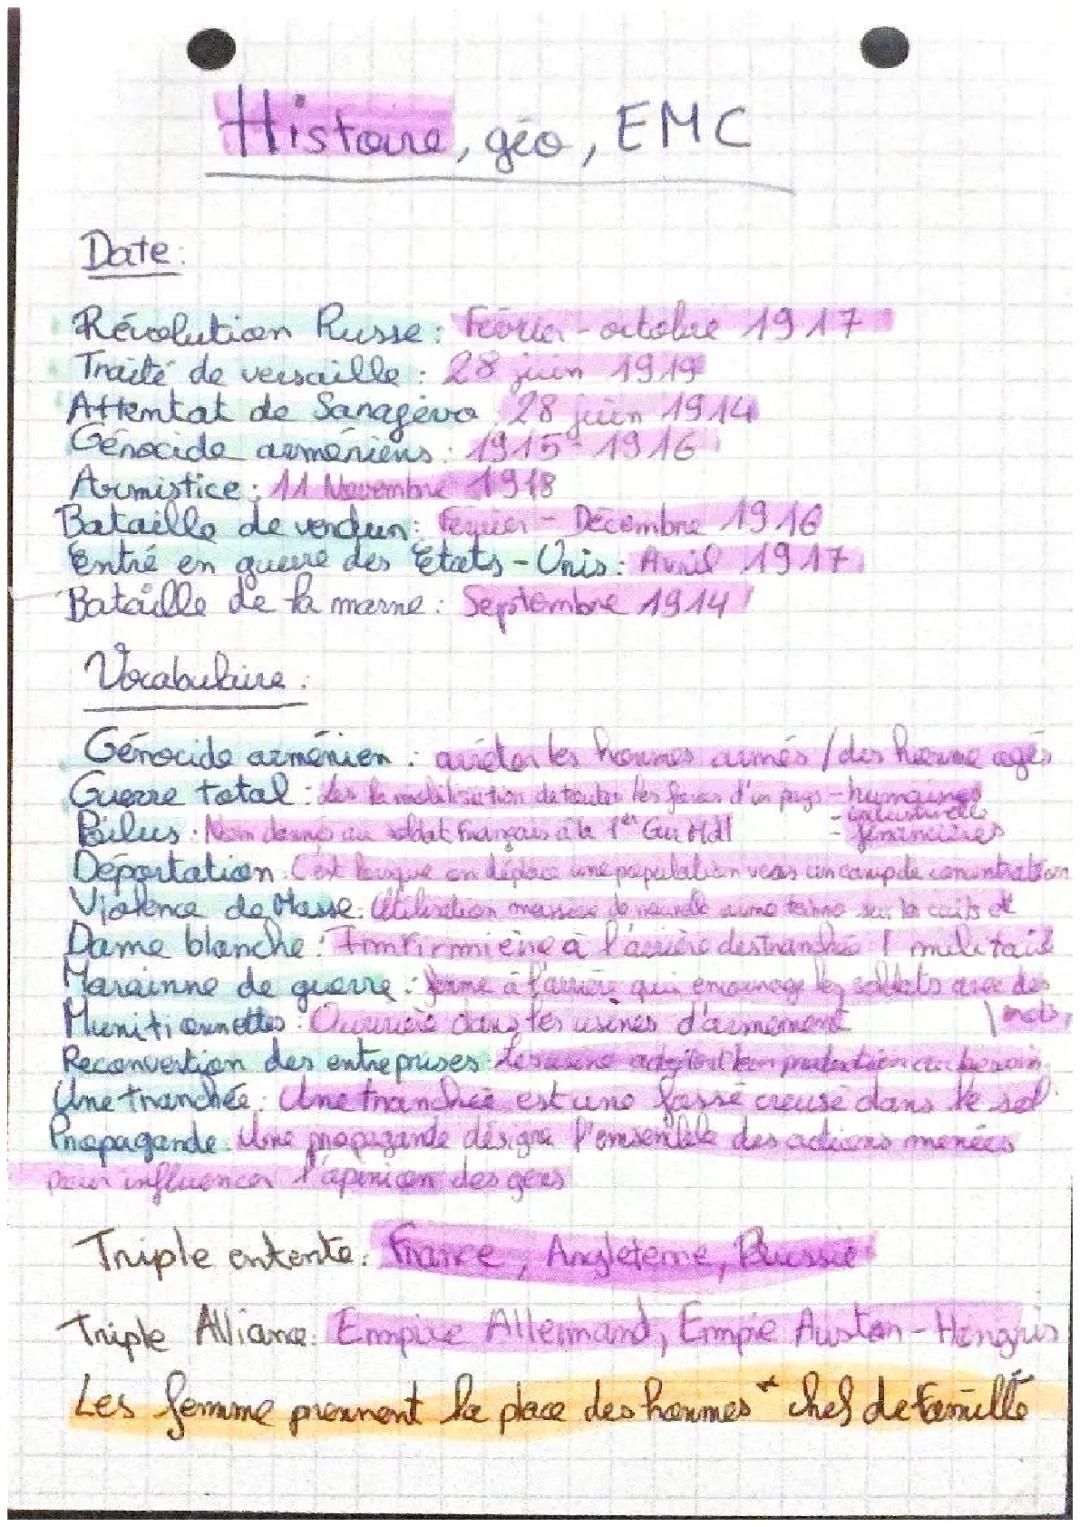 Histoire, géo, EMC
Date:
Révolution Russe: Février - octobre 1917
Traité de versaille : 28 juin 1919
Attentat de Saragévo 28 juin 1914
Génocide arméniens : 1915 - 1916
Armistice : 11 Novembre 1918
Bataille de verdun: Février - Décembre 1916
Entré en guerre des Etats-Unis: Avril 1917
Bataille de la marne : Septembre 1914
Vocabulaire :
Génocide arménien : les hommes armés / des homme agés
Guerre total : la mobilisation de toutes les forces d'un pays - humaines
- industrielle
Poilus : Nom donné au soldat Français à la 1er Gu Mdl - financières
Déportation C'est lorsque on déplace une population vers un camp de concentration
Violence de Masse: Utilisation massive de arme
Dame blanche : à l'arrière des tranchée
Marainne de guerre : femme à l'arrière qui encourage les soldats avec des
Munitionnettes : Ouvrière dans les usines d'armement \ mots
Reconvertion des entreprises leur production au besoin
Une tranchée: Une tranchée est une fossé creusé dans le sol
Propagande: Une propagande désigne l'ensemble des actions menées
pour influencer l'opinion des gens
Triple entente: France, Angleterre, Russie
Triple Alliance: Empire Allemand, Empire Auston-Hongris
Les femme prennent la place des hommes chef de famille